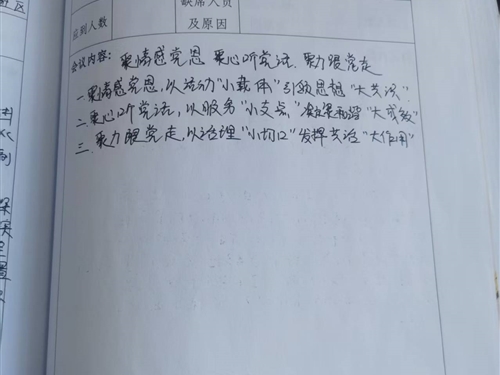 区
缺席人员
应到人数
及原因
会议内容: 聚情感党恩 聚心听党话. 聚力跟党走
一.聚情感党恩,以活动"小载体"引领思想"大共识".
二.聚心听党话,以服务"小支点""大成效"
三.聚力跟党走,以治理"小切口"发挥共治"大作用"
制
置